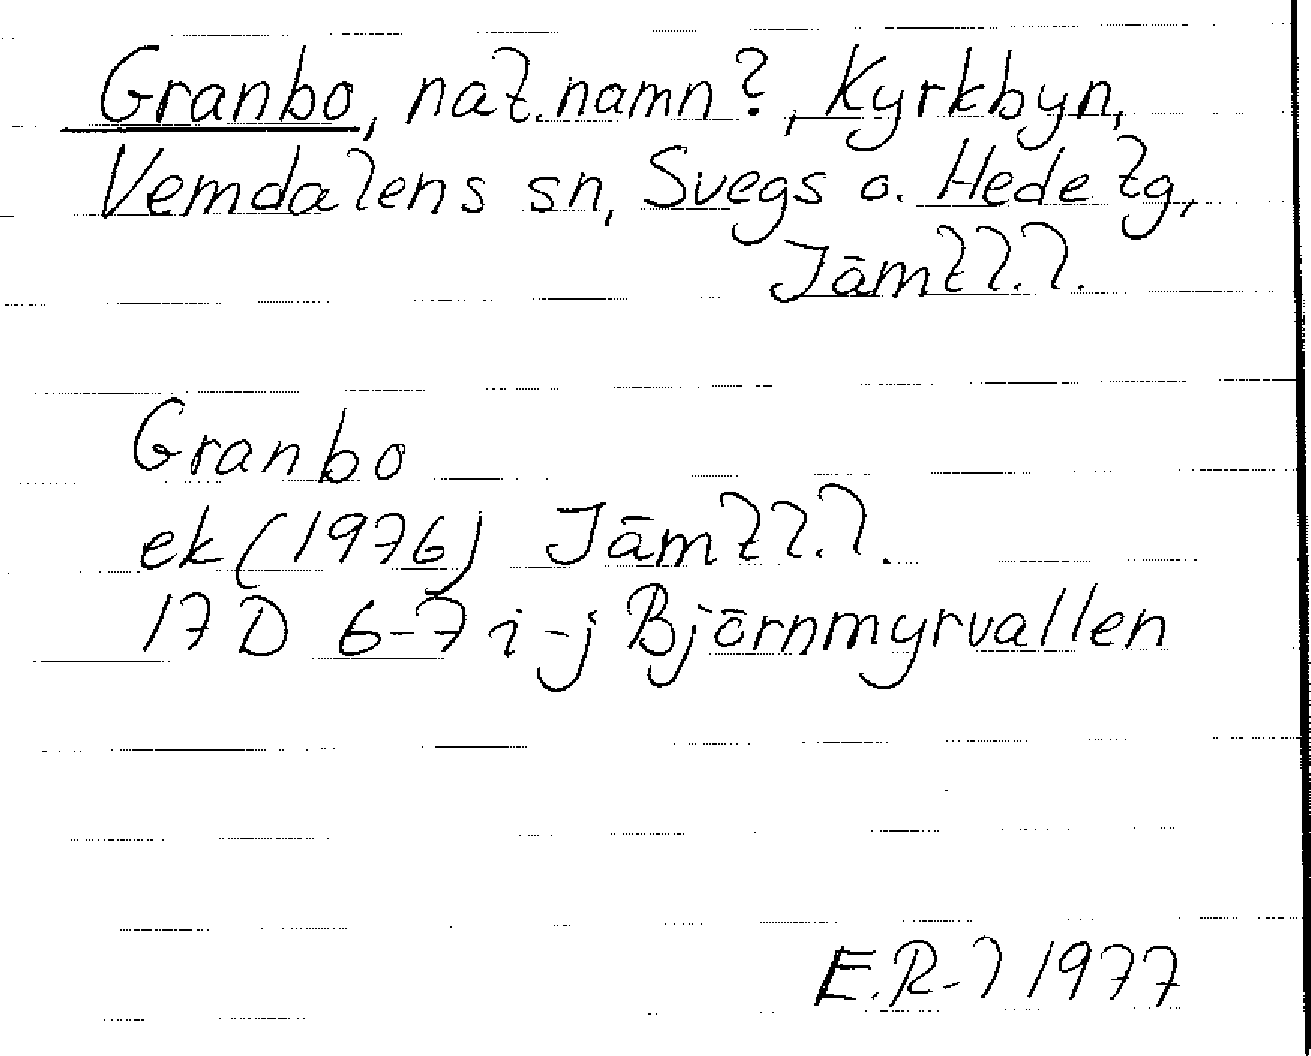 Granbo, nat.namn?, Kyrkbyn,
Vemdalens sn, Svegs o. Hede tg,
Jämtl.l.
Granbo
ek (1976) Jämtl.l.
17 D 6-7 i-j Björnmyrvallen
E.R-l 1977